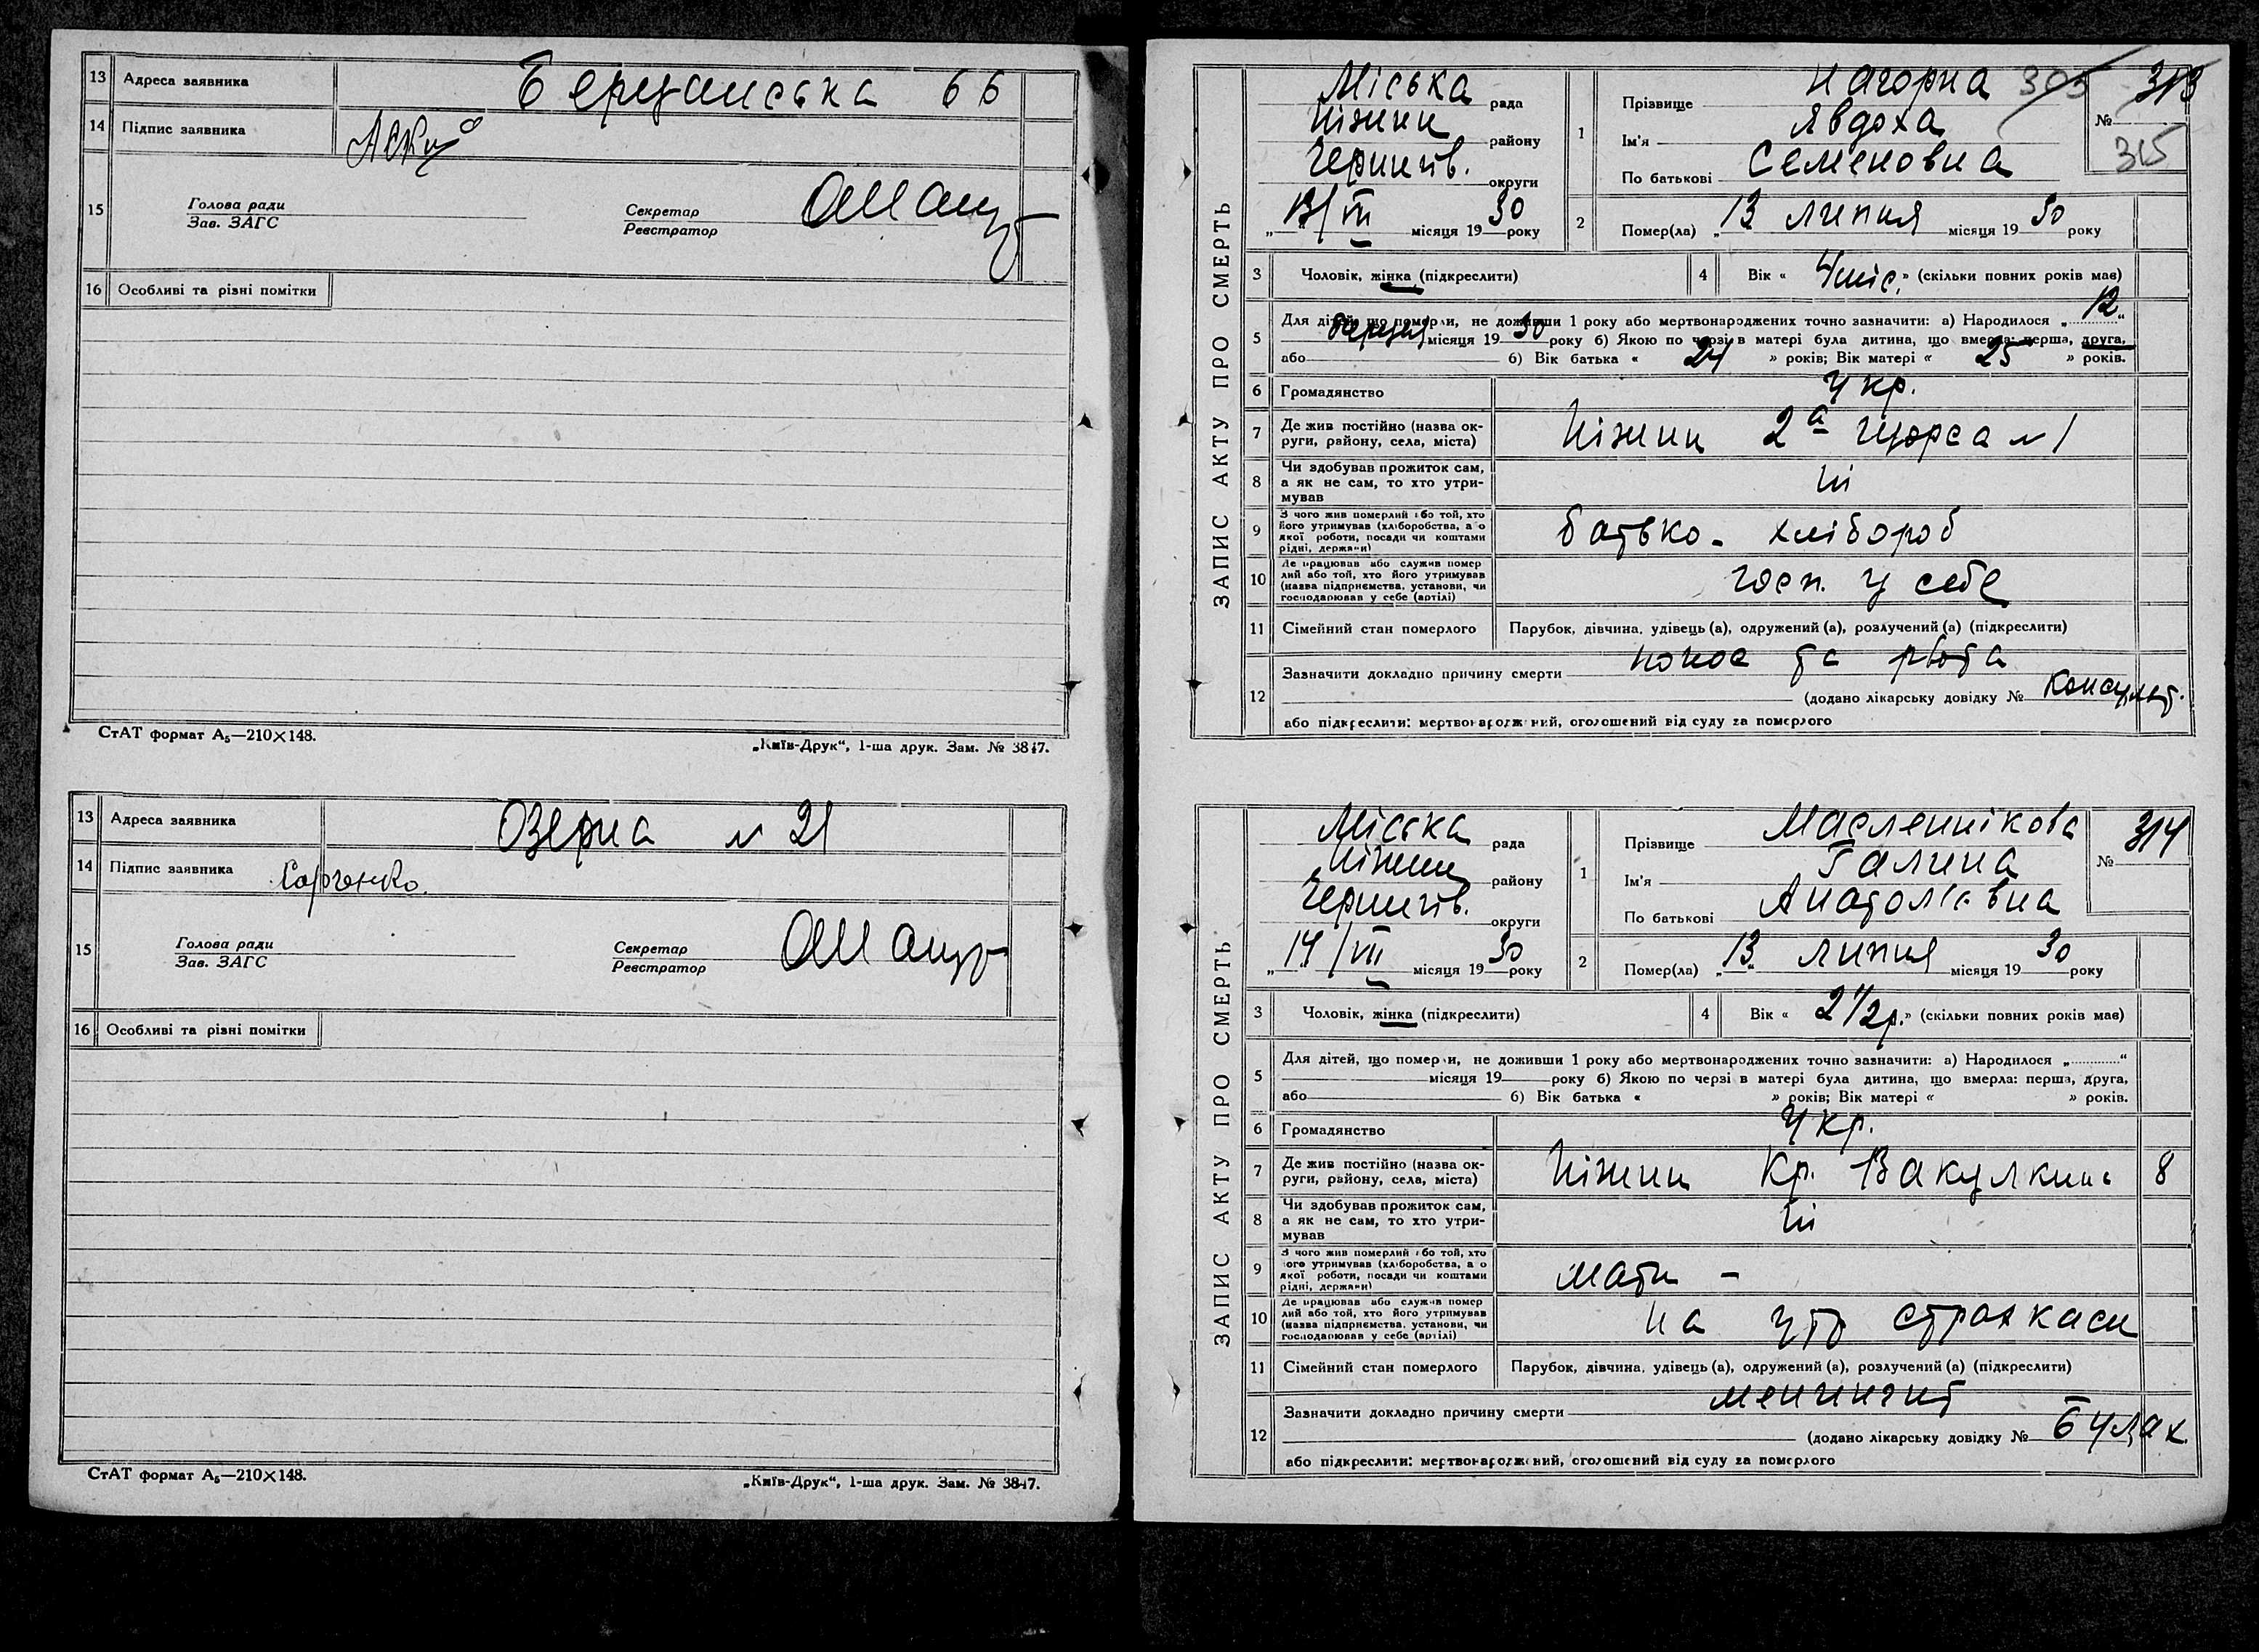 13 Адреса заявника
66
14 Підпис заявника
15 Голова ради
Зав. ЗАГС
Секретар
Реєстратор
16 Особливі та різні помітки
СтАТ формат А₅—210×148.
„Київ-Друк“, 1-ша друк. Зам. № 3847.
13 Адреса заявника Озерна № 21
14 Підпис заявника
15 Голова ради
Зав. ЗАГС
Секретар
Реєстратор
16 Особливі та різні помітки
СтАТ формат А₅—210×148.
„Київ-Друк“, 1-ша друк. Зам. № 3847.
ЗАПИС АКТУ ПРО СМЕРТЬ
Міська рада
Ніжин району
Чернигів. округи
„13/VII місяця 1930 року
1 Прізвище Нагорна
Ім'я Явдоха
По батькові Семеновна
305 313
№
315
2 Помер(ла) „13“ липня місяця 1930 року
3 Чоловік, жінка (підкреслити)
4 Вік « 4 міс. » (скільки повних років мав)
5 Для дітей, що померли, не доживши 1 року або мертвонароджених точно зазначити: а) Народилося „12“
березня місяця 1930 року б) Якою по черзі в матері була дитина, що вмерла: перша, друга,
або б) Вік батька « 24 » років; Вік матері « 25 » років.
6 Громадянство Укр.
7 Де жив постійно (назва округи, району, села, міста) Ніжин 2а Щорса № 1
8 Чи здобував прожиток сам, а як не сам, то хто утримував Ні
9 З чого жив померлий або той, хто його утримував (хліборобства, а о якої роботи, посади чи коштами рідні, держави) батько - хлібороб
10 Де працював або служив померлий або той, хто його утримував (назва підприємства, установи, чи господарював у себе (артілі) госп. у себе
11 Сімейний стан померлого Парубок, дівчина, удівець (а), одружений (а), розлучений (а) (підкреслити)
12 Зазначити докладно причину смерти понос та рвота
(додано лікарську довідку № Консульт.
або підкреслити: мертвонароджений, оголошений від суду за померлого
ЗАПИС АКТУ ПРО СМЕРТЬ
Міська рада
Ніжин району
Чернигів. округи
„14/VII місяця 1930 року
1 Прізвище Масленнікова
Ім'я Галина
По батькові Анатоліївна
№ 314
2 Помер(ла) „13“ липня місяця 1930 року
3 Чоловік, жінка (підкреслити)
4 Вік « 2 1/2 р. » (скільки повних років мав)
5 Для дітей, що померли, не доживши 1 року або мертвонароджених точно зазначити: а) Народилося „ “
місяця 19 року б) Якою по черзі в матері була дитина, що вмерла: перша, друга,
або б) Вік батька « » років; Вік матері « » років.
6 Громадянство Укр.
7 Де жив постійно (назва округи, району, села, міста) Ніжин Кр. 8
8 Чи здобував прожиток сам, а як не сам, то хто утримував Ні
9 З чого жив померлий або той, хто його утримував (хліборобства, а о якої роботи, посади чи коштами рідні, держави) мати -
10 Де працював або служив померлий або той, хто його утримував (назва підприємства, установи, чи господарював у себе (артілі) на утр страхкаси
11 Сімейний стан померлого Парубок, дівчина, удівець (а), одружений (а), розлучений (а) (підкреслити)
12 Зазначити докладно причину смерти менингит
(додано лікарську довідку №
або підкреслити: мертвонароджений, оголошений від суду за померлого